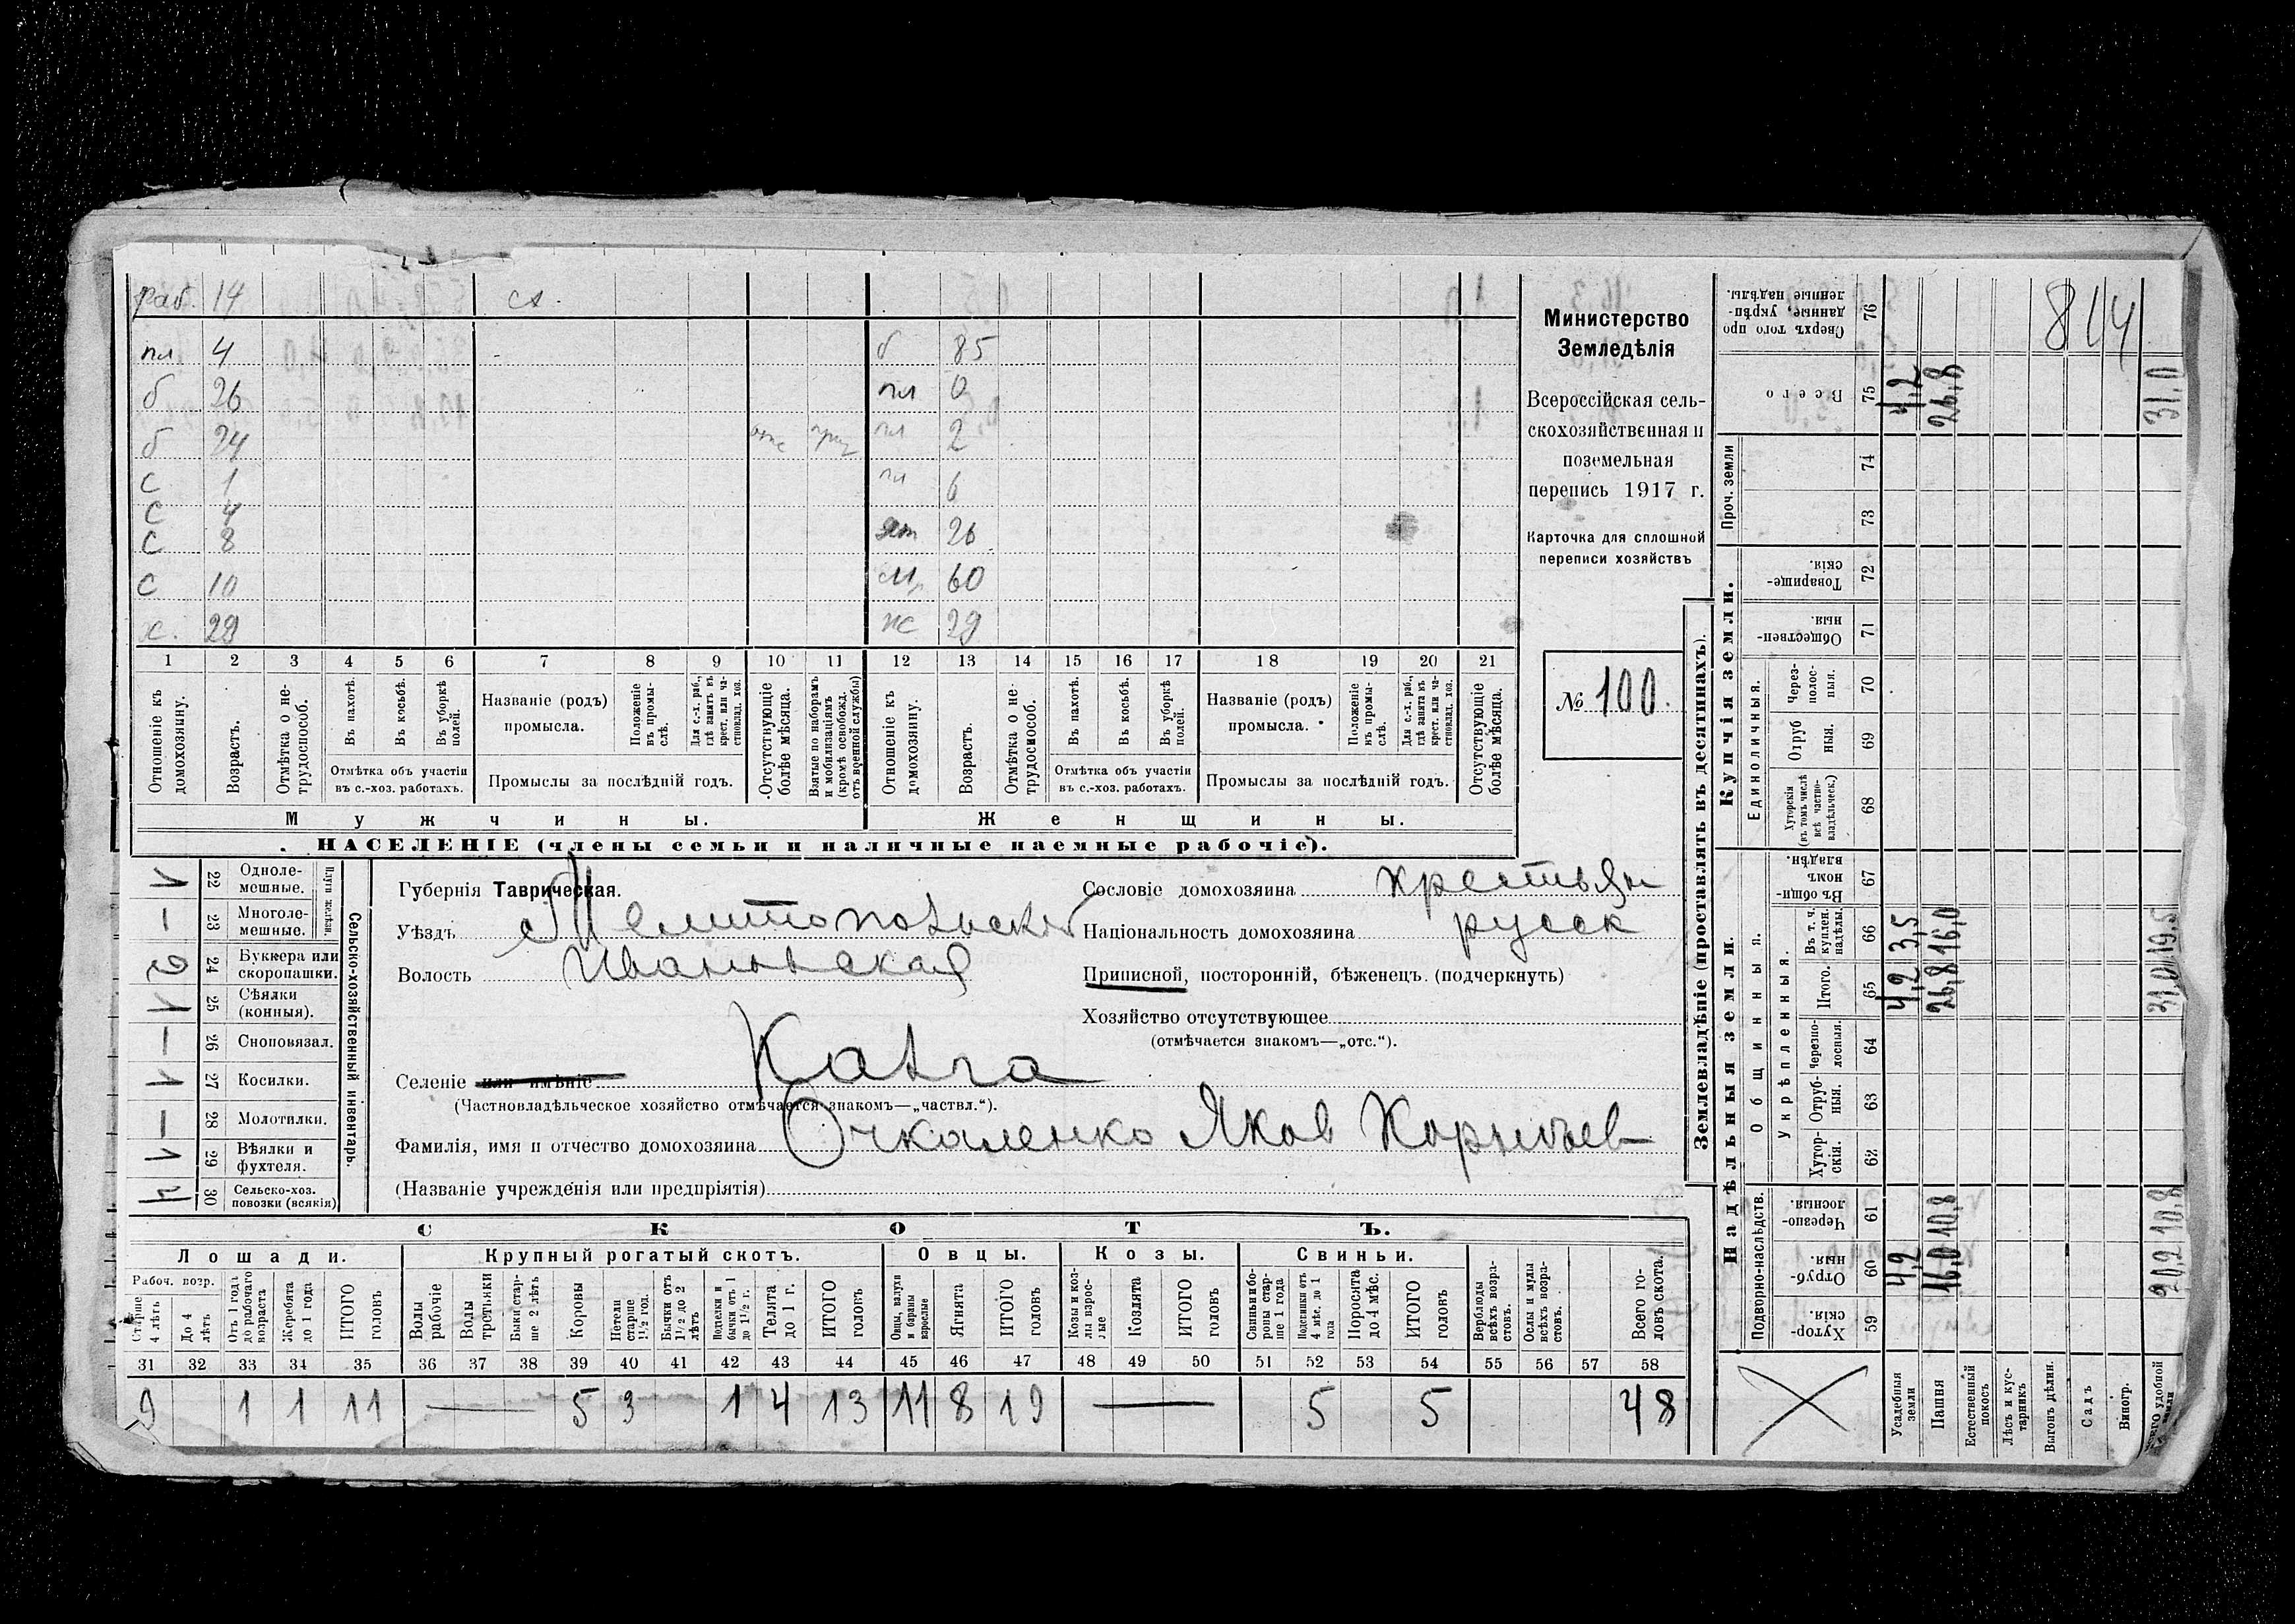 раб. 14 сх.
пл 4 б 85
б 26 пл 0
б 24 отс приз пл 2
с 1 пл 6
с 4
с 8 26
с 10 60
х. 29 ж 29
1 2 3 4 5 6 7 8 9 10 11 12 13 14 15 16 17 18 19 20 21
Отношеніе къ домохозяину.
Возрастъ.
Отмѣтка о нетрудоспособ.
Въ пахотѣ.
Въ косьбѣ.
Въ уборкѣ полей.
Отмѣтка объ участіи
въ с.-хоз. работахъ.
Названіе (родъ)
промысла.
Положеніе въ промыслѣ.
Для с.-х. раб., гдѣ занятъ въ крест. или частновлад. хоз.
Промыслы за послѣдній годъ.
Отсутствующіе болѣе мѣсяца.
Взятые по наборамъ и мобилизаціямъ (кромѣ освобожд. отъ военной службы)
Отношеніе къ домохозяину.
Возрастъ.
Отмѣтка о нетрудоспособ.
Въ пахотѣ.
Въ косьбѣ.
Въ уборкѣ полей.
Отмѣтка объ участіи
въ с.-хоз. работахъ.
Названіе (родъ)
промысла.
Положеніе въ промыслѣ.
Для с.-х. раб., гдѣ занята въ крест. или частновлад. хоз.
Промыслы за послѣдній годъ.
Отсутствующіе болѣе мѣсяца.
Мужчины. Женщины.
НАСЕЛЕНІЕ (члены семьи и наличные наемные рабочіе).
Министерство
Земледѣлія
Всероссійская сель-
скохозяйственная и
поземельная
перепись 1917 г.
Карточка для сплошной
переписи хозяйствъ
№ 100.
Сельско-хозяйственный инвентарь.
Плуги желѣзн.
1 22 Одноле-мешные.
— 23 Многоле-мешные.
2 24 Буккера или скоропашки.
1 25 Сѣялки (конныя).
— 26 Сноповязал.
1 27 Косилки.
— 28 Молотилки.
1 29 Вѣялки и фухтеля.
4 30 Сельско-хоз. повозки (всякія)
Губернія Таврическая.
Уѣздъ Мелитопольский
Волость Ивановская
Селеніе или имѣніе Калга
(Частновладѣльческое хозяйство отмѣчается знакомъ—„частвл.“).
Фамилія, имя и отчество домохозяина Очкаленко Яков Корнѣев
(Названіе учрежденія или предпріятія)
Сословіе домохозяина крестьян
Національность домохозяина русск
Приписной, посторонній, бѣженецъ. (подчеркнуть)
Хозяйство отсутствующее
(отмѣчается знакомъ—„отс.“).
СКОТЪ.
Лошади. Крупный рогатый скотъ. Овцы. Козы. Свиньи.
Рабоч. возр.
Старше 4 лѣтъ
До 4 лѣтъ
Отъ 1 года до рабочаго возраста
Жеребята до 1 года
ИТОГО головъ
Волы рабочіе
Волы третьяки
Быки старше 2 лѣтъ
Коровы
Нетели старше 1½ год.
Бычки отъ 1½ до 2 лѣтъ
Подтелки и бычки отъ 1 до 1½ г.
Телята до 1 г.
ИТОГО головъ
Овцы, валухи и бараны взрослые
Ягнята
ИТОГО головъ
Козы и козлы взрослые
Козлята
ИТОГО головъ
Свиньи и боровы старше 1 года
Подсвинки отъ 4 мѣс. до 1 года
Поросята до 4 мѣс.
ИТОГО головъ
Верблюды всѣхъ возрастовъ.
Ослы и мулы всѣхъ возрастовъ.
Всего головъ скота.
31 32 33 34 35 36 37 38 39 40 41 42 43 44 45 46 47 48 49 50 51 52 53 54 55 56 57 58
9 1 1 11 — 5 3 1 4 13 11 8 19 — 5 5 48
Землевладѣніе (проставлять въ десятинахъ).
Надѣльныя земли. Купчія земли. Проч. земли
Подворно-наслѣдств.
Общинныя.
Укрѣпленныя.
Единоличныя.
Хуторскія. 59
Отрубныя. 60
Черезполосныя. 61
Хуторскія. 62
Отрубныя. 63
Черезполосныя. 64
Итого. 65
Въ т. ч. куплен. надѣлы. 66
Въ общинномъ владѣн. 67
Хуторскія (въ томъ числѣ всѣ частновладѣльческ.) 68
Отрубныя. 69
Черезполосныя. 70
Общественныя. 71
Товарищескія. 72
73
74
Всего 75
Сверхъ того проданные, укрѣпленные надѣлы. 76
Усадебныя земли 4,2 4,2 3,5 4,2
Пашня 16,0 10,8 26,8 16,0 26,8
Естественный покосъ
Лѣсъ и кустарникъ
Выгонъ дѣлин.
Садъ
Виногр.
Всего удобной земли 20,2 10,8 31,0 19,5 31,0
814